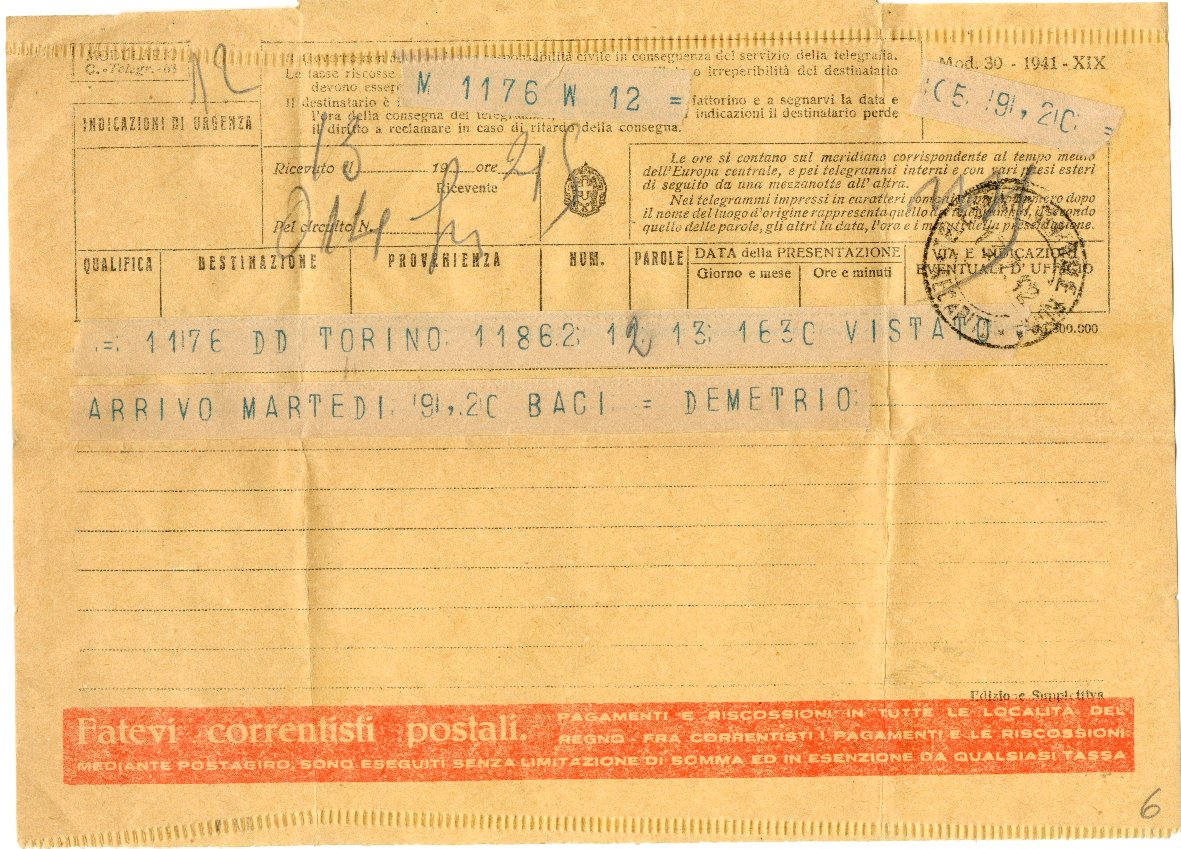 MODULARIO
C. - Telegr. - 61
12
INDICAZIONI DI URGENZA
Il Governo non responsabilità civile in conseguenza del servizio della telegrafia.
Le tasse riscosse o irreperibilità del destinatario
devono essere
Il destinatario è fattorino e a segnarvi la data e
l'ora della consegna del telegramma indicazioni il destinatario perde
il diritto a reclamare in caso di ritardo della consegna.
M 1176 W 12 =
Mod. 30 - 1941 - XIX
C5 '91,.20 =
Ricevuto 13 19 ore 21
Ricevente
Pel circuito N. 014
Le ore si contano sul meridiano corrispondente al tempo medio
dell'Europa centrale, e pei telegrammi interni e con vari paesi esteri
di seguito da una mezzanotte all'altra.
Nei telegrammi impressi in caratteri romani, il primo numero dopo
il nome del luogo d'origine rappresenta quello del telegramma, il secondo
quello delle parole, gli altri la data, l'ora e i minuti della presentazione.
QUALIFICA
DESTINAZIONE
PROVENIENZA
NUM.
PAROLE
DATA della PRESENTAZIONE
Giorno e mese
Ore e minuti
VIA E INDICAZIONI
EVENTUALI D'UFFICIO
.300.000
= 1176 DD TORINO 11862 12 13 1630 VISTATO
ARRIVO MARTEDI '91,.20 BACI = DEMETRIO
Edizione Suppletiva
Fatevi correntisti postali.
PAGAMENTI E RISCOSSIONI IN TUTTE LE LOCALITÀ DEL
REGNO - FRA CORRENTISTI I PAGAMENTI E LE RISCOSSIONI
MEDIANTE POSTAGIRO, SONO ESEGUITI SENZA LIMITAZIONE DI SOMMA ED IN ESENZIONE DA QUALSIASI TASSA
6